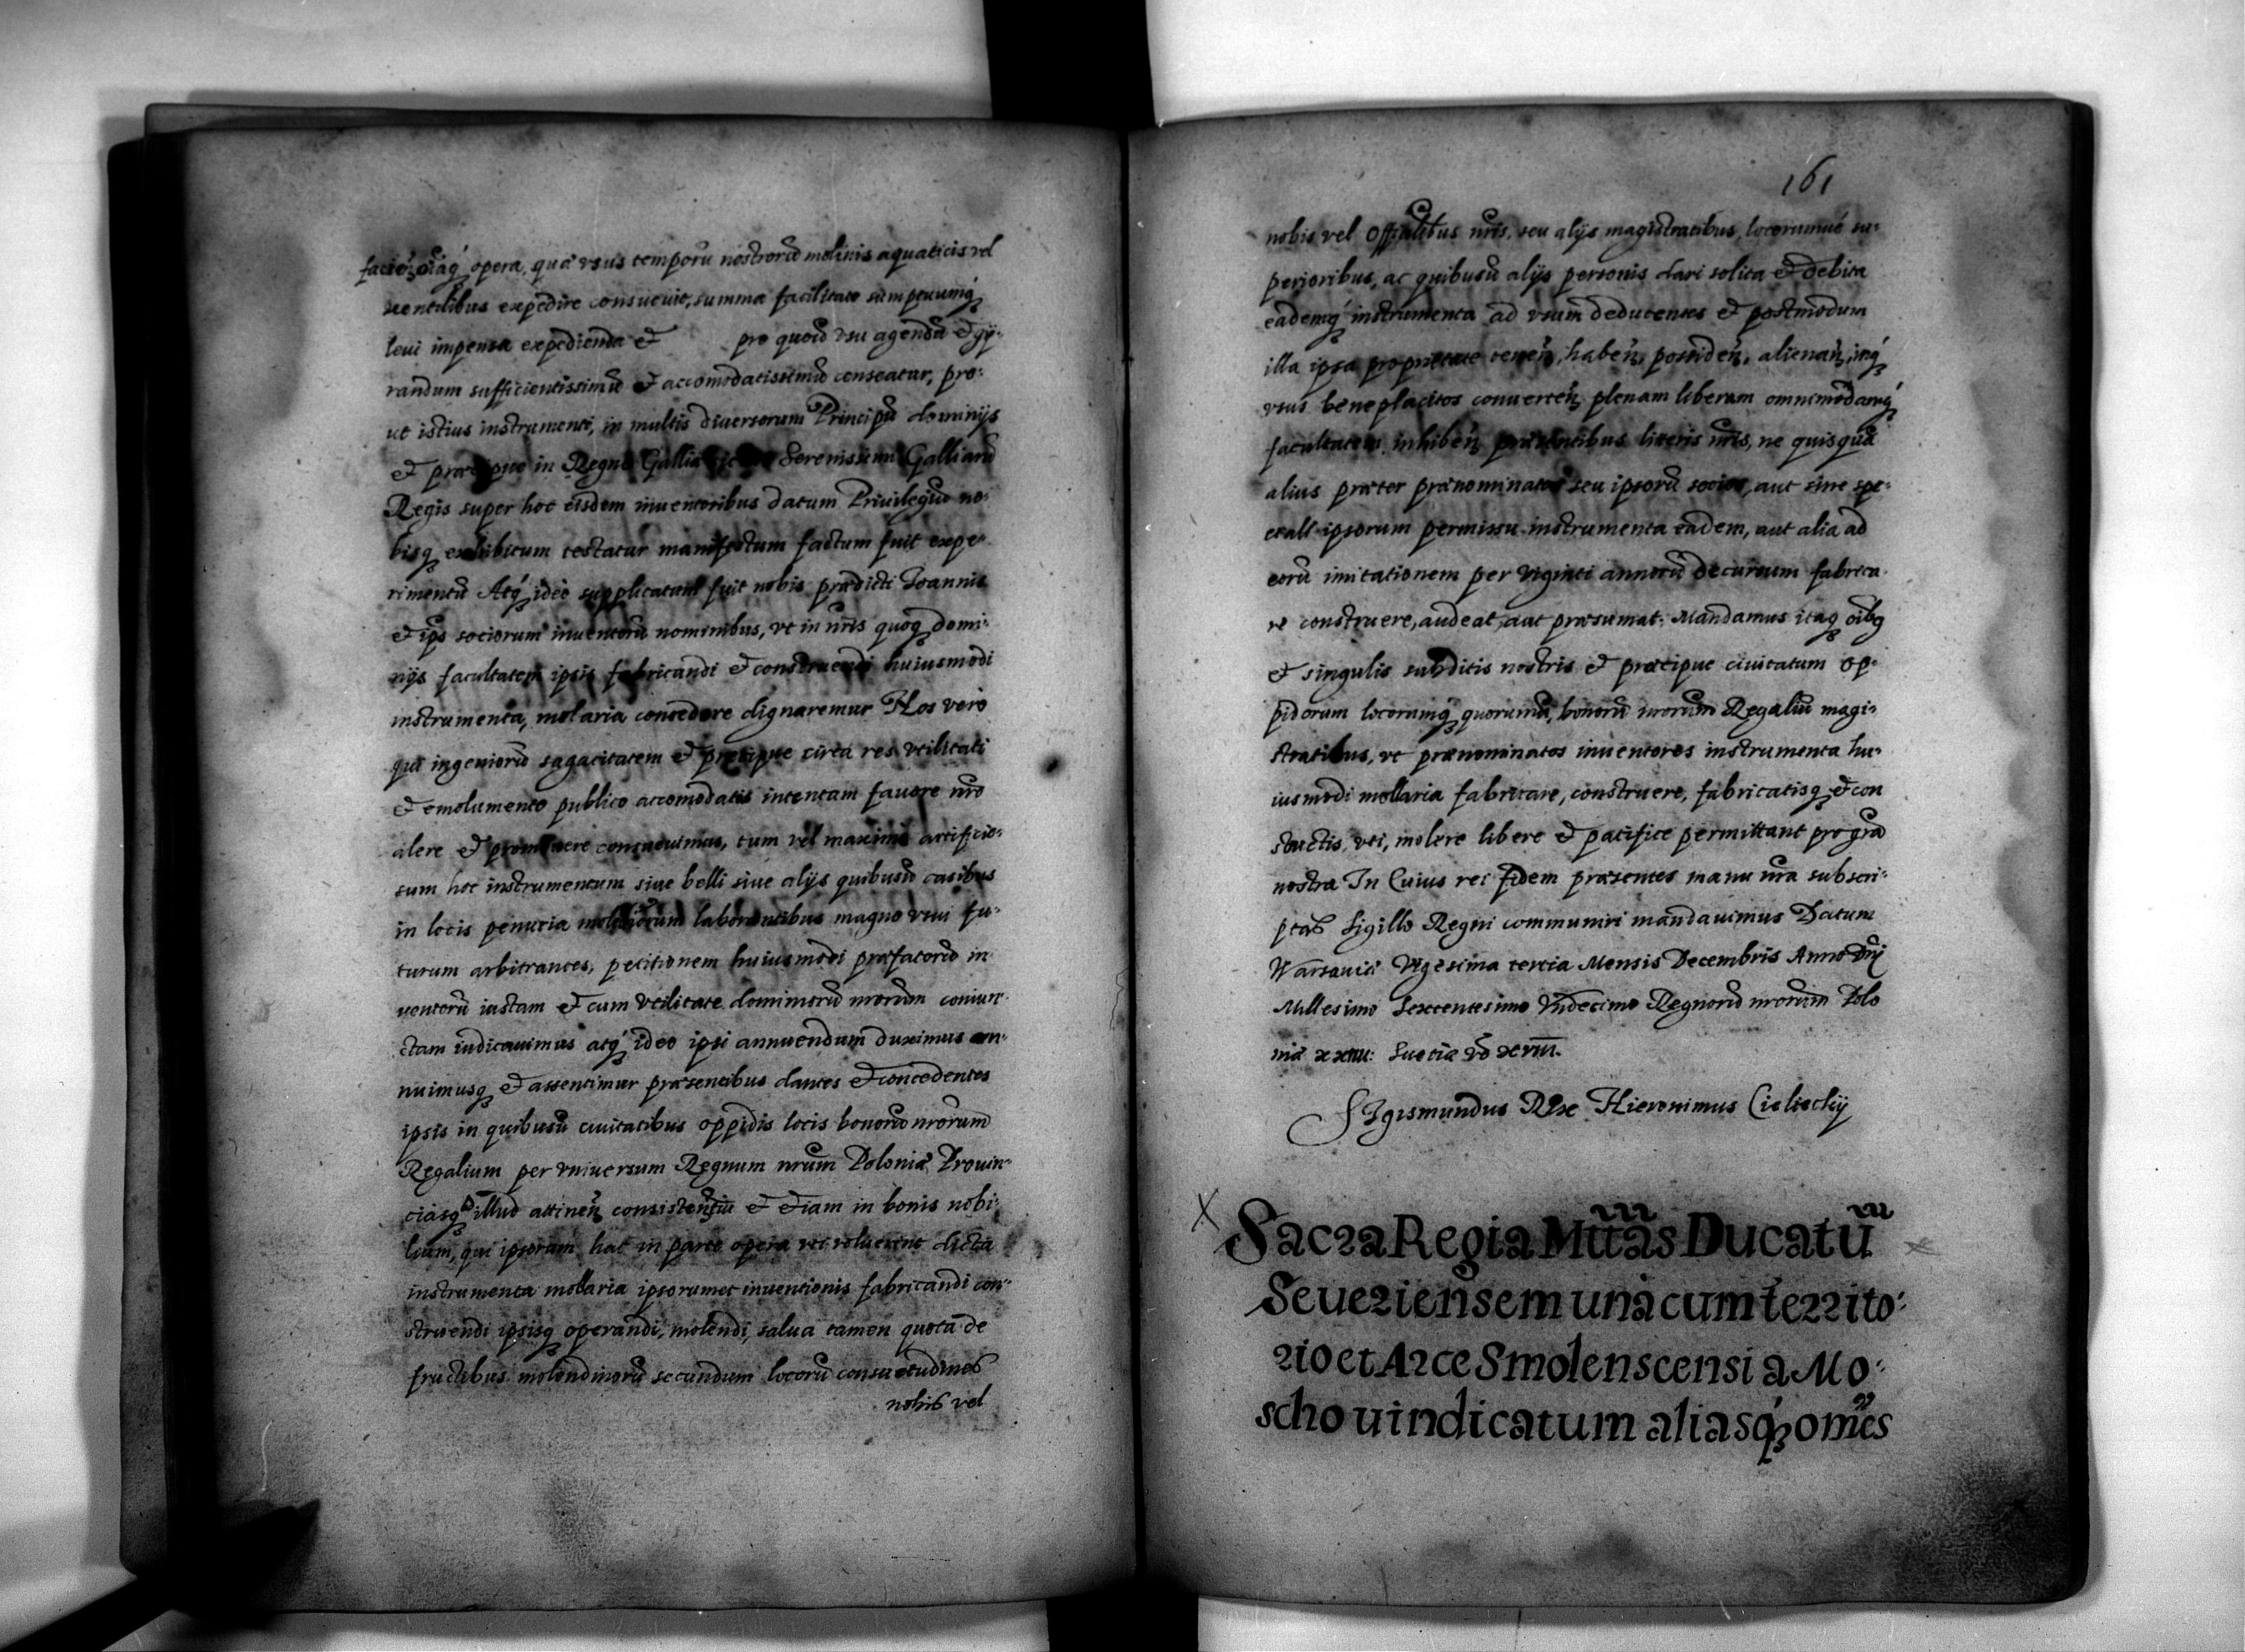 facień oiaq́ opera, quæ vsus temporū nostrorū molinis aquaticis vel
uentilibus expedire consueuit, summa facilitate sumptuumq́
leui impensa expedienda et pro quouis vsu agenda et gy-
randum sufficientissimū et accomodatissimū censeatur, pro-
ut istius instrumenti, in multis diuersorum Principū dominijs
et præcipue in Regno Galliæ Serenissimi Galliarū
Regis super hoc eisdem inuentoribus datum Priuilegiū no-
bisq exhibitum testatur manifestum factum fuit expe-
rimentū Atq́ ideo supplicatum fuit nobis prædicti Joannis
et ips sociorum inuentorū nominibus, vt in nris quoq domi-
nijs facultatem ipsis fabricandi et construendi huiusmodi
instrumenta, molaria concedere dignaremur Nos vero
qui ingeniorū sagacitatem et præcipue circa res vtilitati
et emolumento publico accomodatis intentam fauore nro
alere et promouere consueuimus, tum vel maxime artificio-
sum hoc instrumentum siue belli siue alijs quibusū casibus
in locis penuria molitiorum laborantibus magno vsui fu-
turum arbitrantes, petitionem huiusmodi præfatorū in
uentorū iustam et cum vtilitate dominiorū nrorum coniun-
ctam iudicauimus atq́ ideo ipsi annuendum duximus an-
nuimusq et assentimur præsentibus dantes et concedentes
ipsis in quibusū ciuitatibus oppidis locis bonorū nrorum
Regalium per vniuersum Regnum nrum Poloniæ Prouin-
ciasq illud attineń consistentiū et etiam in bonis nobi-
lium, qui ipsorum hac in parte opera vti voluerint dicta
instrumenta mollaria ipsorumet inuentionis fabricandi con-
struendi ipsisq operandi, molendi, salua tamen quota de
fructibus molendinorū secundum locorū consuetudines
nobis vel
161
nobis vel Officialibus nris, seu alijs magistratibus, locorumué su-
perioribus, ac quibusū alijs personis dari solita et debita
eademq́ instrumenta ad vsum deducentes et postmodum
illa ipsa proprietate teneń, habeń, possideń, alienań, inq́
vsus beneplacitos conuerteń plenam liberam omnimodamq́
facultatem, inhibeń præsentibus literis nris, ne quisquā
alius præter prænominatos seu ipsorū socios, aut sine spe-
ciali ipsorum permissu instrumenta eadem, aut alia ad
eorū imitationem per viginti annorū decursum fabrica-
re construere, audeat, aut præsumat. Mandamus itaq oibq
et singulis subditis nostris et præcipue ciuitatum op-
pidorum locorumq́ quorumū, bonorū nrorum Regaliū magi-
stratibus, vt prænominatos inuentores instrumenta hu-
iusmodi mollaria fabricare, construere, fabricatisq et con
structis, vti, molere libere et pacifice permittant pro gra
nostra In Cuius rei fidem præsentes manu nra subscri-
ptas Sigillo Regni communiri mandauimus Datum
Warsauiæ Vigesima tertia Mensis Decembris Anno Dni
Millesimo Sexcentesimo Vndecimo Regnorū nrorum Polo
niæ xxiiii: Suetiæ vō xviii.
Sigismundus Rex Hieronimus Cielieckij
Sacra Regia Mttas Ducatū
Seueriensem unà cum territo-
rio et Arce Smolenscensi a Mo-
scho uindicatum aliasq́ omes